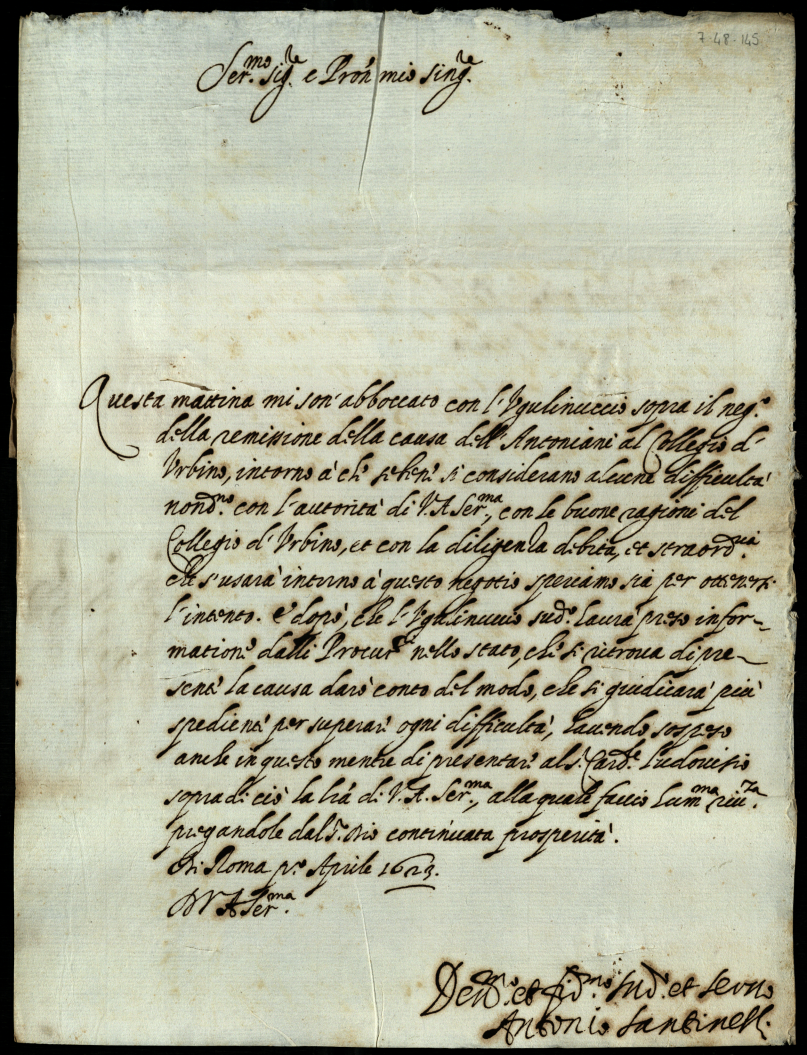 7-48-145
Ser.mo sig.re e Pron mio sing.re
Questa mattina mi son' abboccato con l'Ugulinuccio sopra il neg.o
della remissione della causa dell'Antoniani al Collegio d'
Urbino, intorno à che se bene si considerano alcune difficultà
nond.no con l'autorità di V.A. Ser.ma, con le buone ragioni del
Collegio d'Urbino, et con la diligenza debita, et straord.ria
che s'usarà intorno à questo negotio speriamo sia per ottenersi
l'intento. E dopò, che l'Ugulinuccio sud.o havrà preso infor-
matione dalli Procur.ri nello stato, che si ritrova di pre-
sente la causa darò conto del modo, che si giudicarà più
spediente per superare ogni difficultà, havendo sospeso
anche in questo mentre di presentare al S. Card.le Ludovisio
sopra di ciò la lrã di V.A. Ser.ma, alla quale faccio hum.ma riv.za
pregandole dal S.r Dio continuata prosperità.
Di Roma p.o Aprile 1623.
Di V A Ser.ma
Dev.mo et fid.mo sud.o et servo
Antonio Santinelli